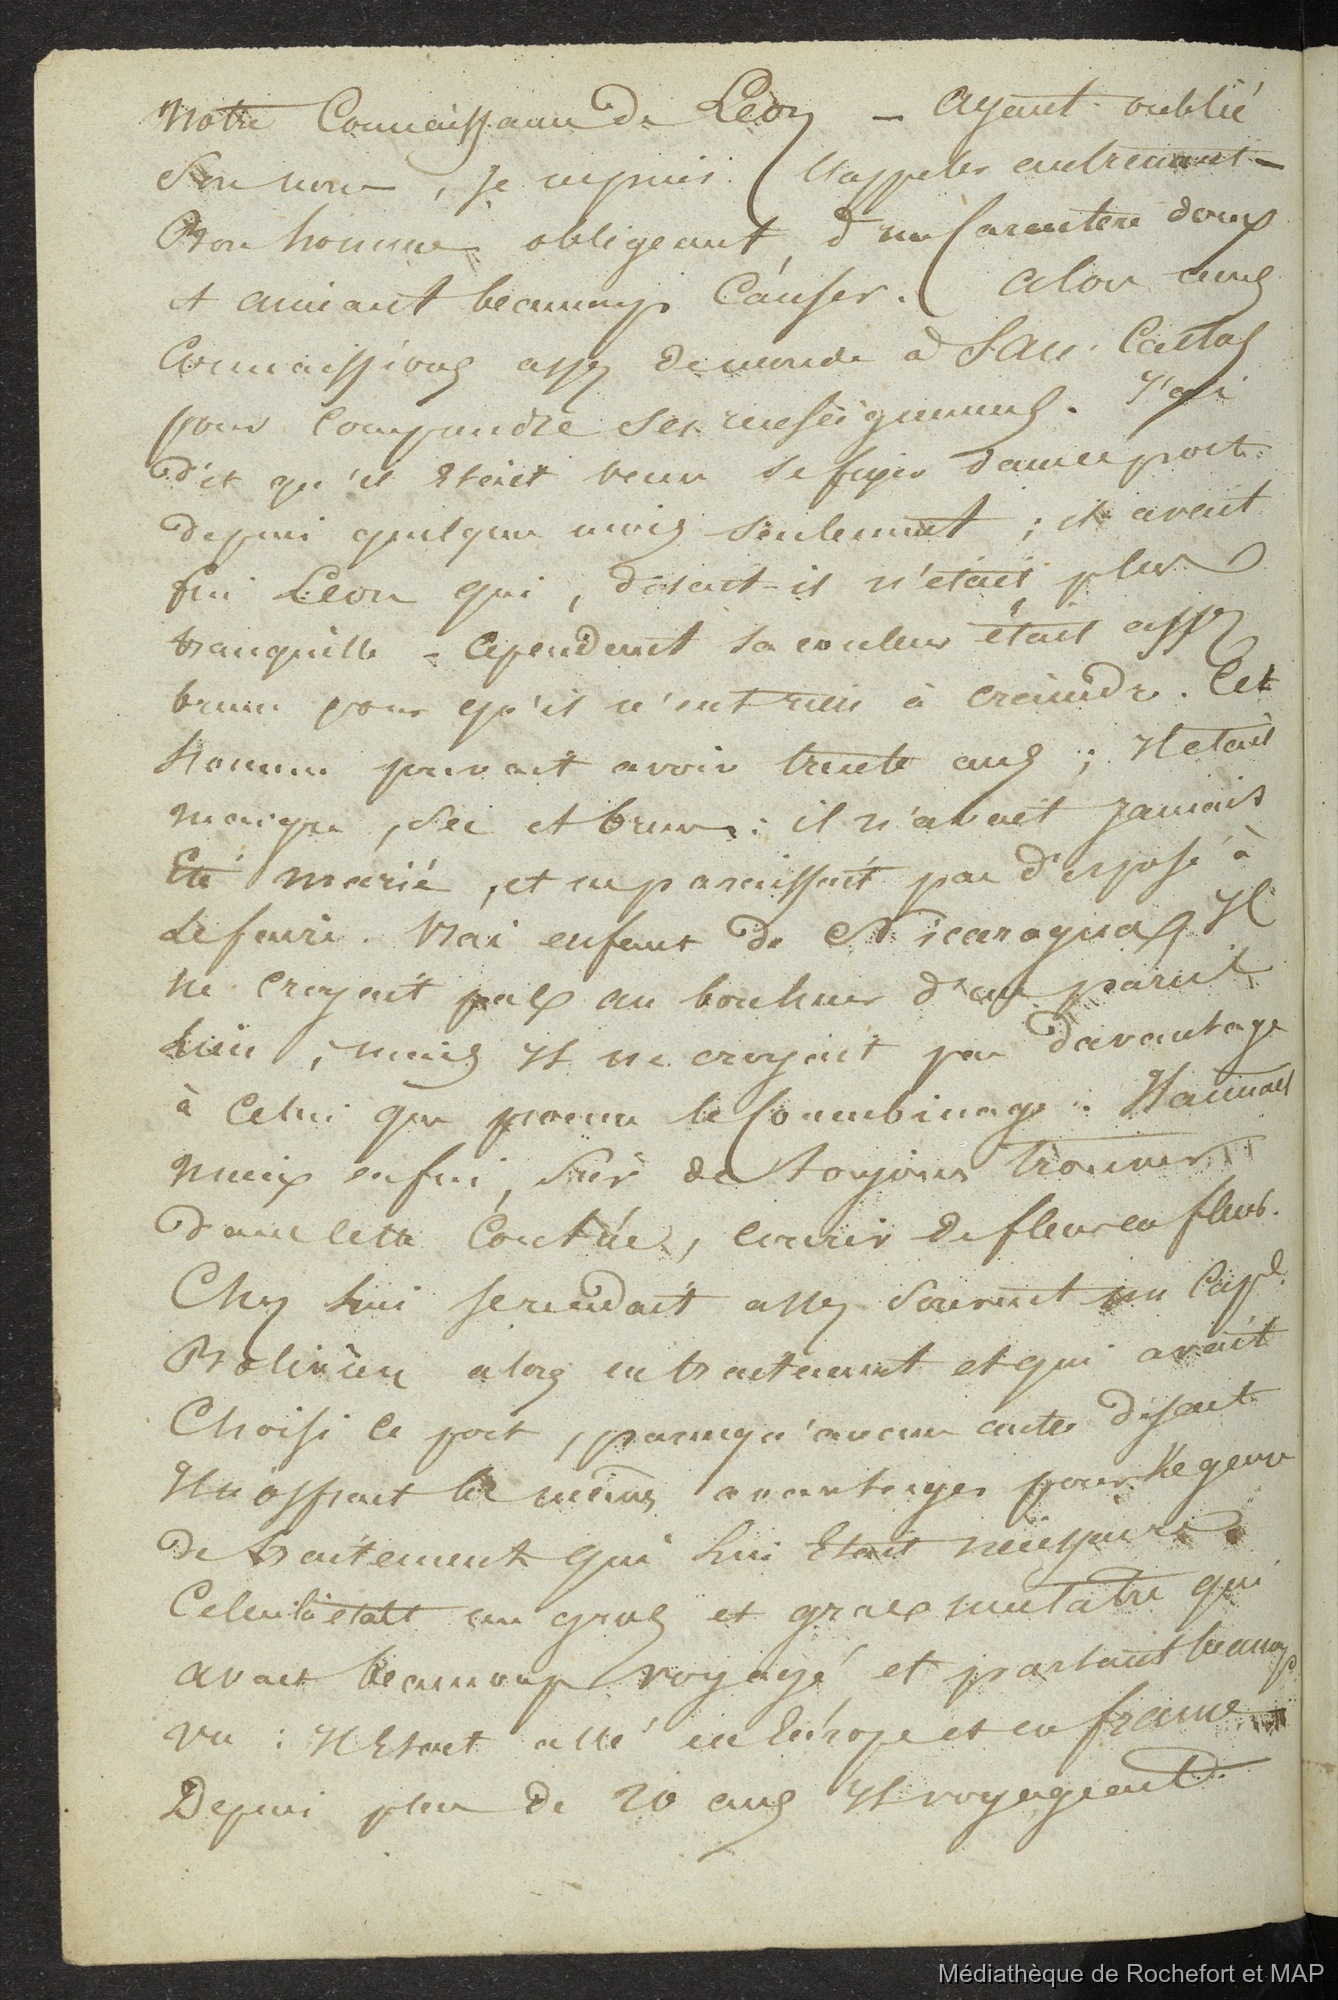 Notre Connaissance de Léon – ayant oublié
Son nom, je ne puis l'appeler autrement –
Bon homme obligeant, d'un Caractère doux
et aimant beaucoup Causer.
Connaissions assez de monde à San Carlos
pour comprendre ses renseignemens. J'ai
dit qu'il Etait venu se fixer dans ce port
depuis quelques mois seulement ; il avait
fui Léon qui, disait-il n'était plus
tranquille – Cependant sa couleur était assez
brune pour qu'il n'eut rien à craindre. Cet
homme pouvait avoir trente ans ; Il était
maigre, Sec et brun : il n'avait jamais
Eté marié, et ne paraissait pas disposé à
le faire. Vrai enfant de Nicaragua, Il
ne croyait pas au bonheur d'un pareil
lien, mais Il ne croyait pas davantage
à Celui que procure le Concubinage. Il aimait
mieux enfin, Sûr de toujours trouver
dans cette Contrée, courir de fleurs en fleurs.
Chez lui se rendait assez souvent un Cap.e
Bolivien alors en traitement et qui avait
Choisi ce port, parcequ'aucun autre disait
Il n'offrait les mêmes avantages pour le genre
de traitement qui lui Etait nécessaire.
Celui là était un gros et gras mulâtre qui
avait beaucoup voyagé, et partant beaucoup
vu : Il Etait allé en Europe et en france
Depuis plus de 20 ans Il voyageait.